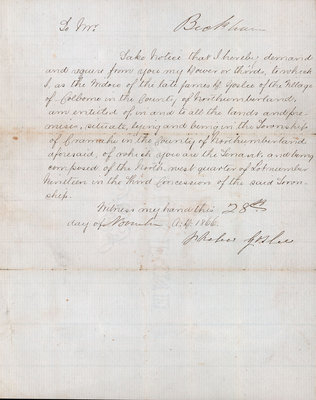 To Mr. Beckham
Take Notice that I hereby demand
and require from you my Dower or thirds, to which
I, as the Widow of the late James Goslee of the Village
of Colborne in the County of Northumberland,
am entitled of in and to all the lands and pre-
mises, situate, lying and being in the Township
of Cramahe in the County of Northumberland
aforesaid, of which you are the Tenant, and being
composed of the North west quarter of Lot number
Nineteen in the Third Concession of the said Town-
ship.
Witness my hand this 28th
day of A.D. 1866.
Goslee